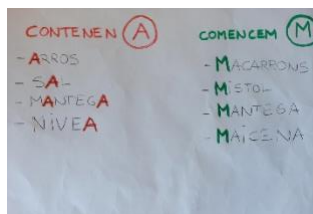 CONTENEN A
- ARROS
- SAL
- MANTEGA
- NIVEA
COMENCEM M
- MACARRONS
- MISTOL
- MANTEGA
- MAICENA